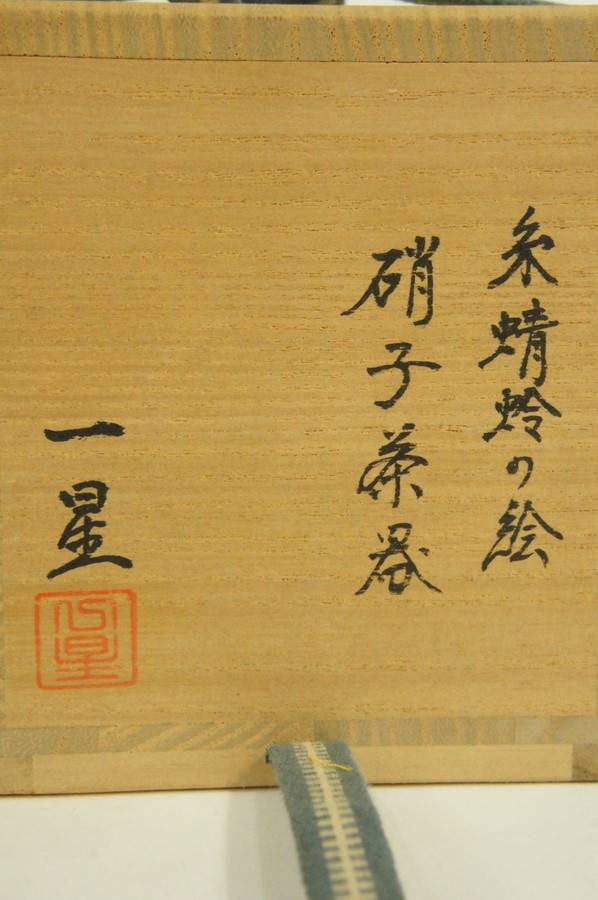 糸蜻蛉の絵
硝子茶器
一星